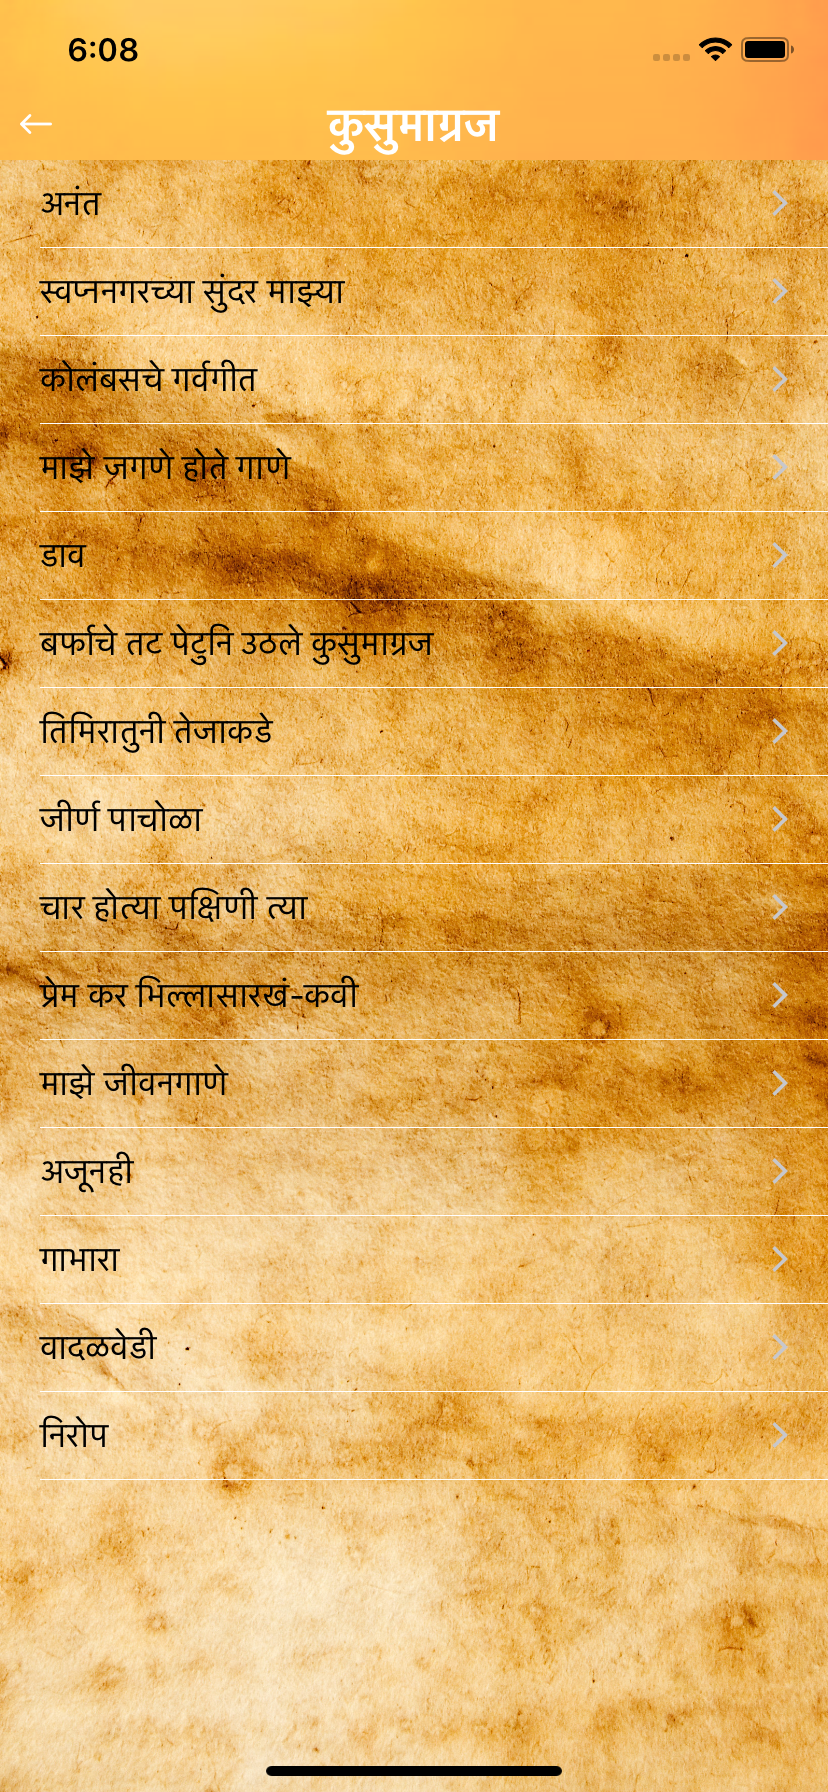 6:08
कुसुमाग्रज
अनंत
स्वप्ननगरच्या सुंदर माझ्या
कोलंबसचे गर्वगीत
माझे जगणे होते गाणे
डाव
बर्फाचे तट पेटुनि उठले कुसुमाग्रज
तिमिरातुनी तेजाकडे
जीर्ण पाचोळा
चार होत्या पक्षिणी त्या
प्रेम कर भिल्लासारखं-कवी
माझे जीवनगाणे
अजूनही
गाभारा
वादळवेडी
निरोप